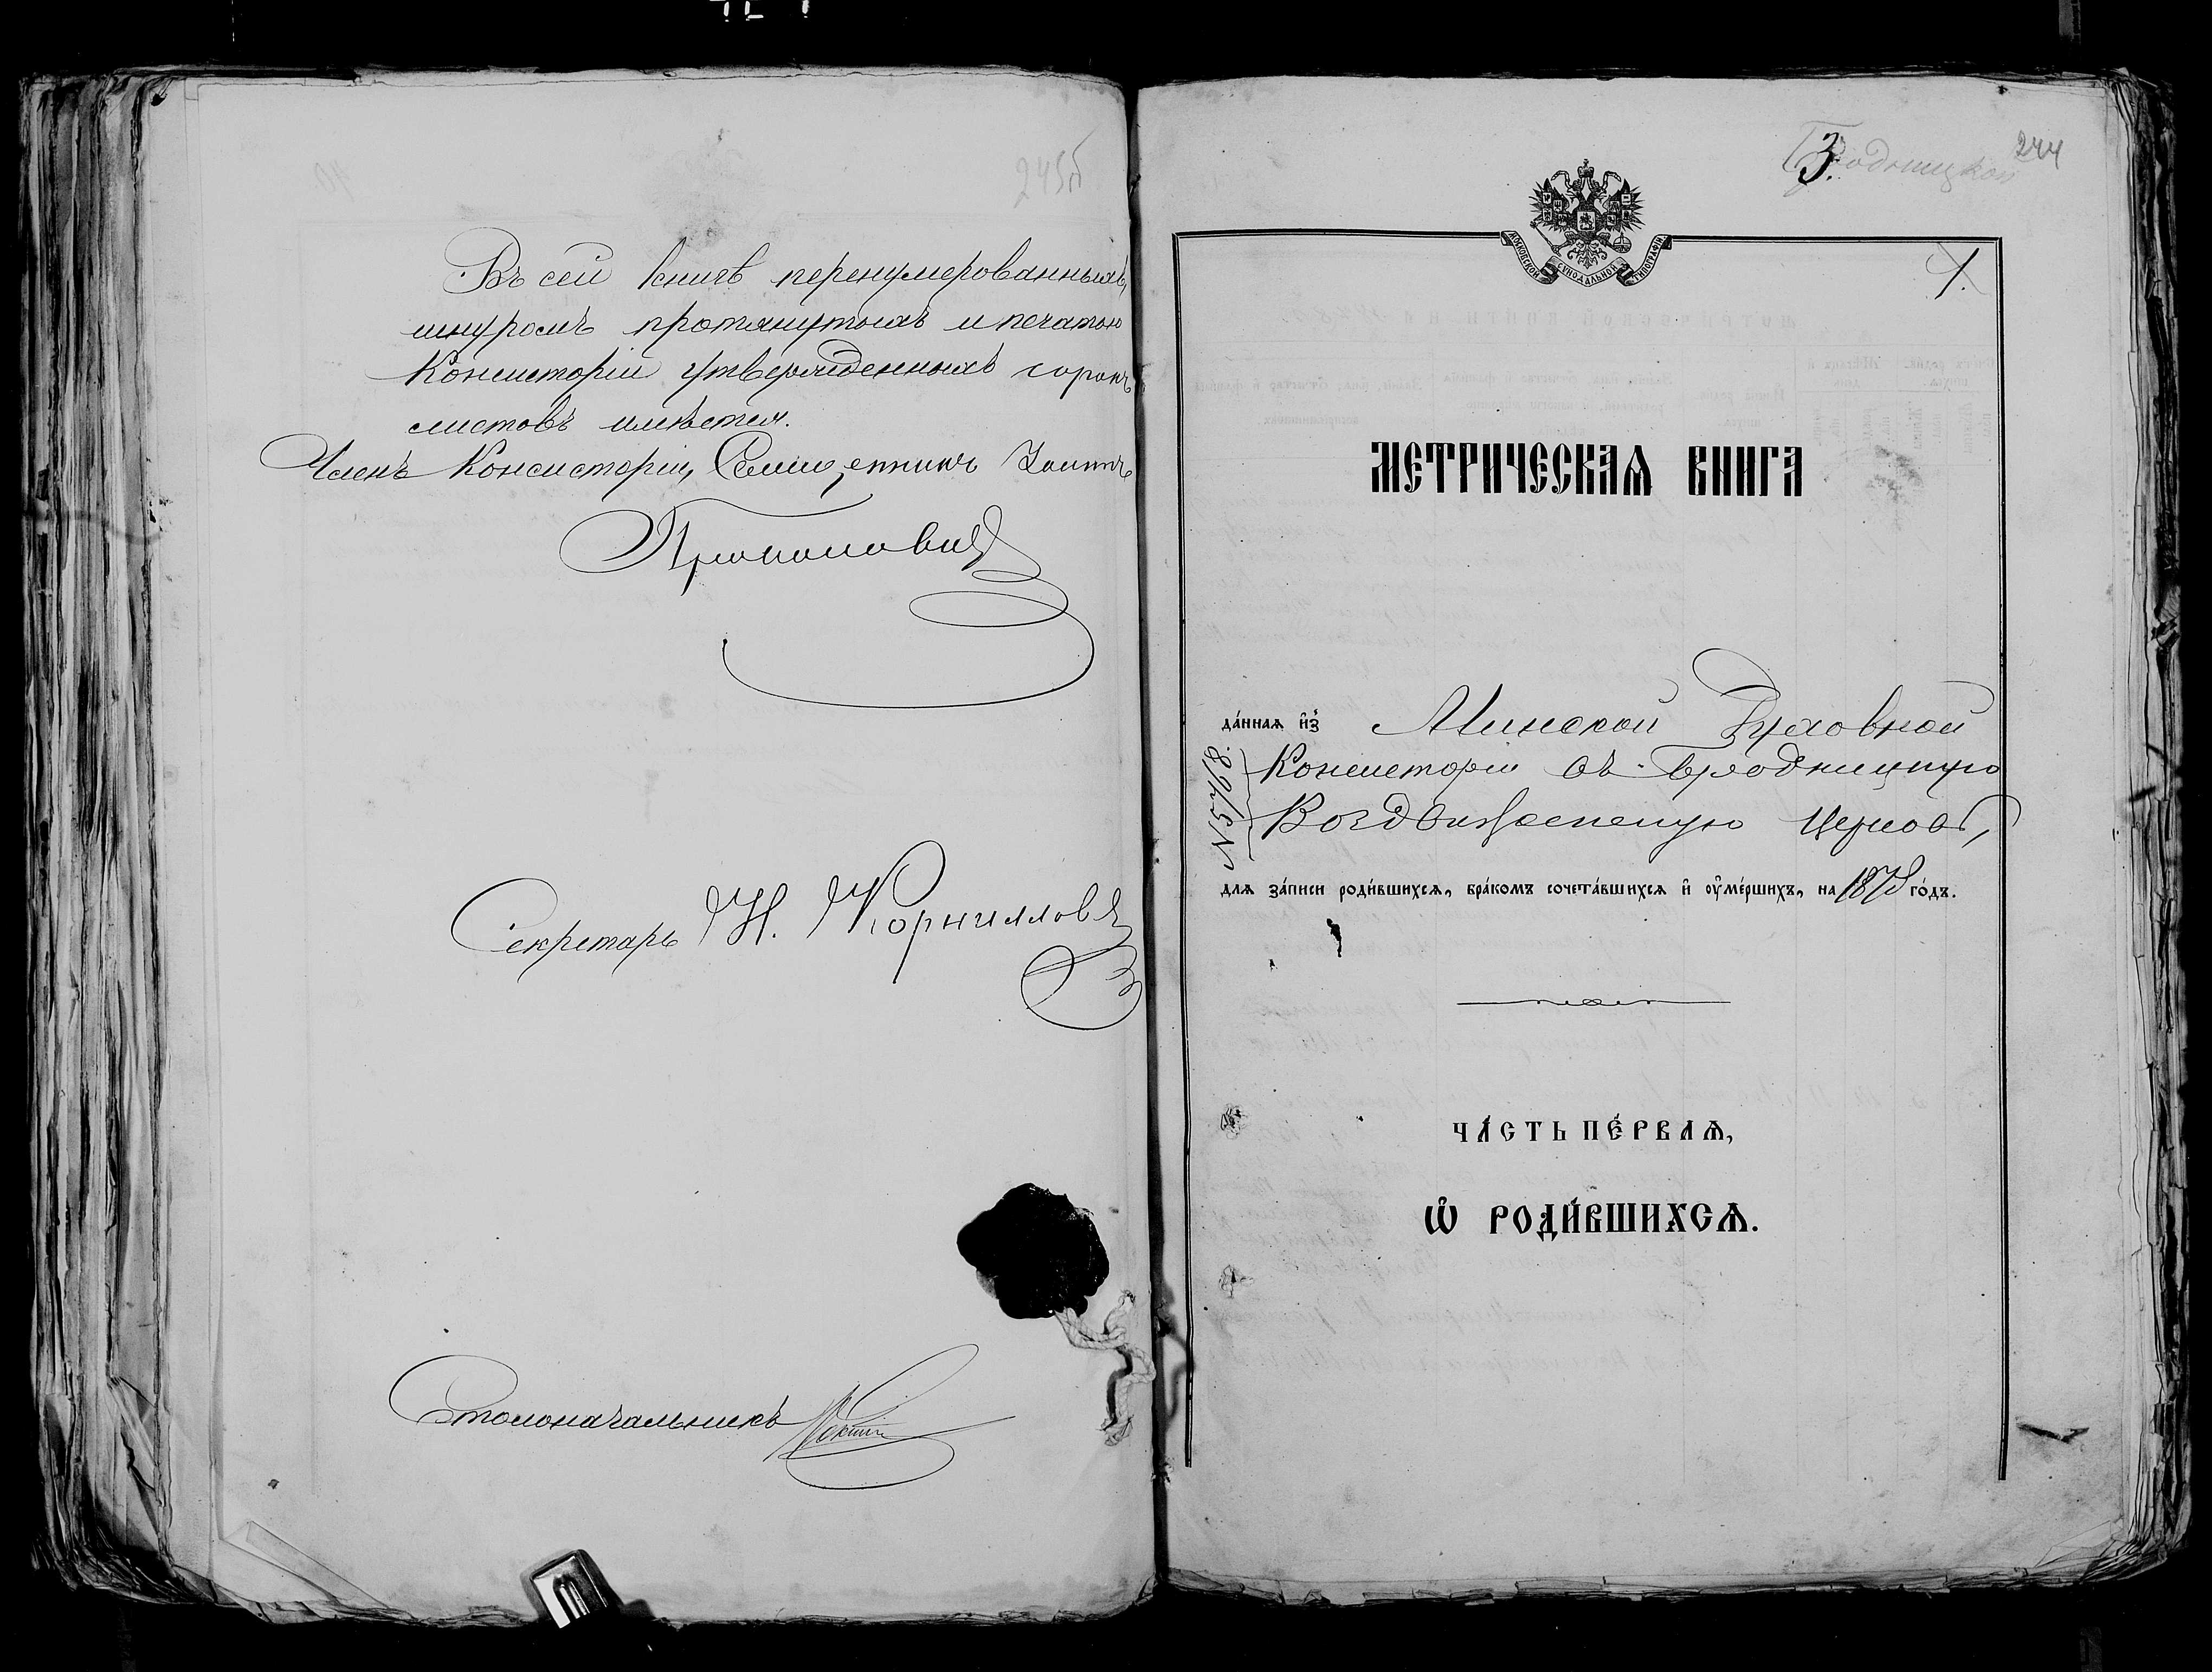 243б
Въ сей книгѣ перенумерованныхъ,
шнуромъ протянутыхъ и печатью
Консисторіи утвержденныхъ сорокъ
листовъ имѣется.
Членъ Консисторіи, Священникъ
Секретарь Н. Корниловъ
Столоначальникъ
244
3.
1.
МОСКОВСКОЙ СѴНОДАЛЬНОЙ ТИПОГРАФІИ
МЕТРИЧЕСКАѦ КНИГА
да́ннаѧ и҆з̾ Минской Духовной
Консисторіи въ Бродницкую
Воздвиженскую церковь,
№ 5768.
длѧ за́писи роди́вшихсѧ, бра́комъ сочета́вшихсѧ и҆ ᲂу҆ме́ршихъ, на 1878 го́дъ.
ЧА́СТЬ ПЕ́РВАѦ,
Ѡ҆ РОДИ́ВШИХСѦ.